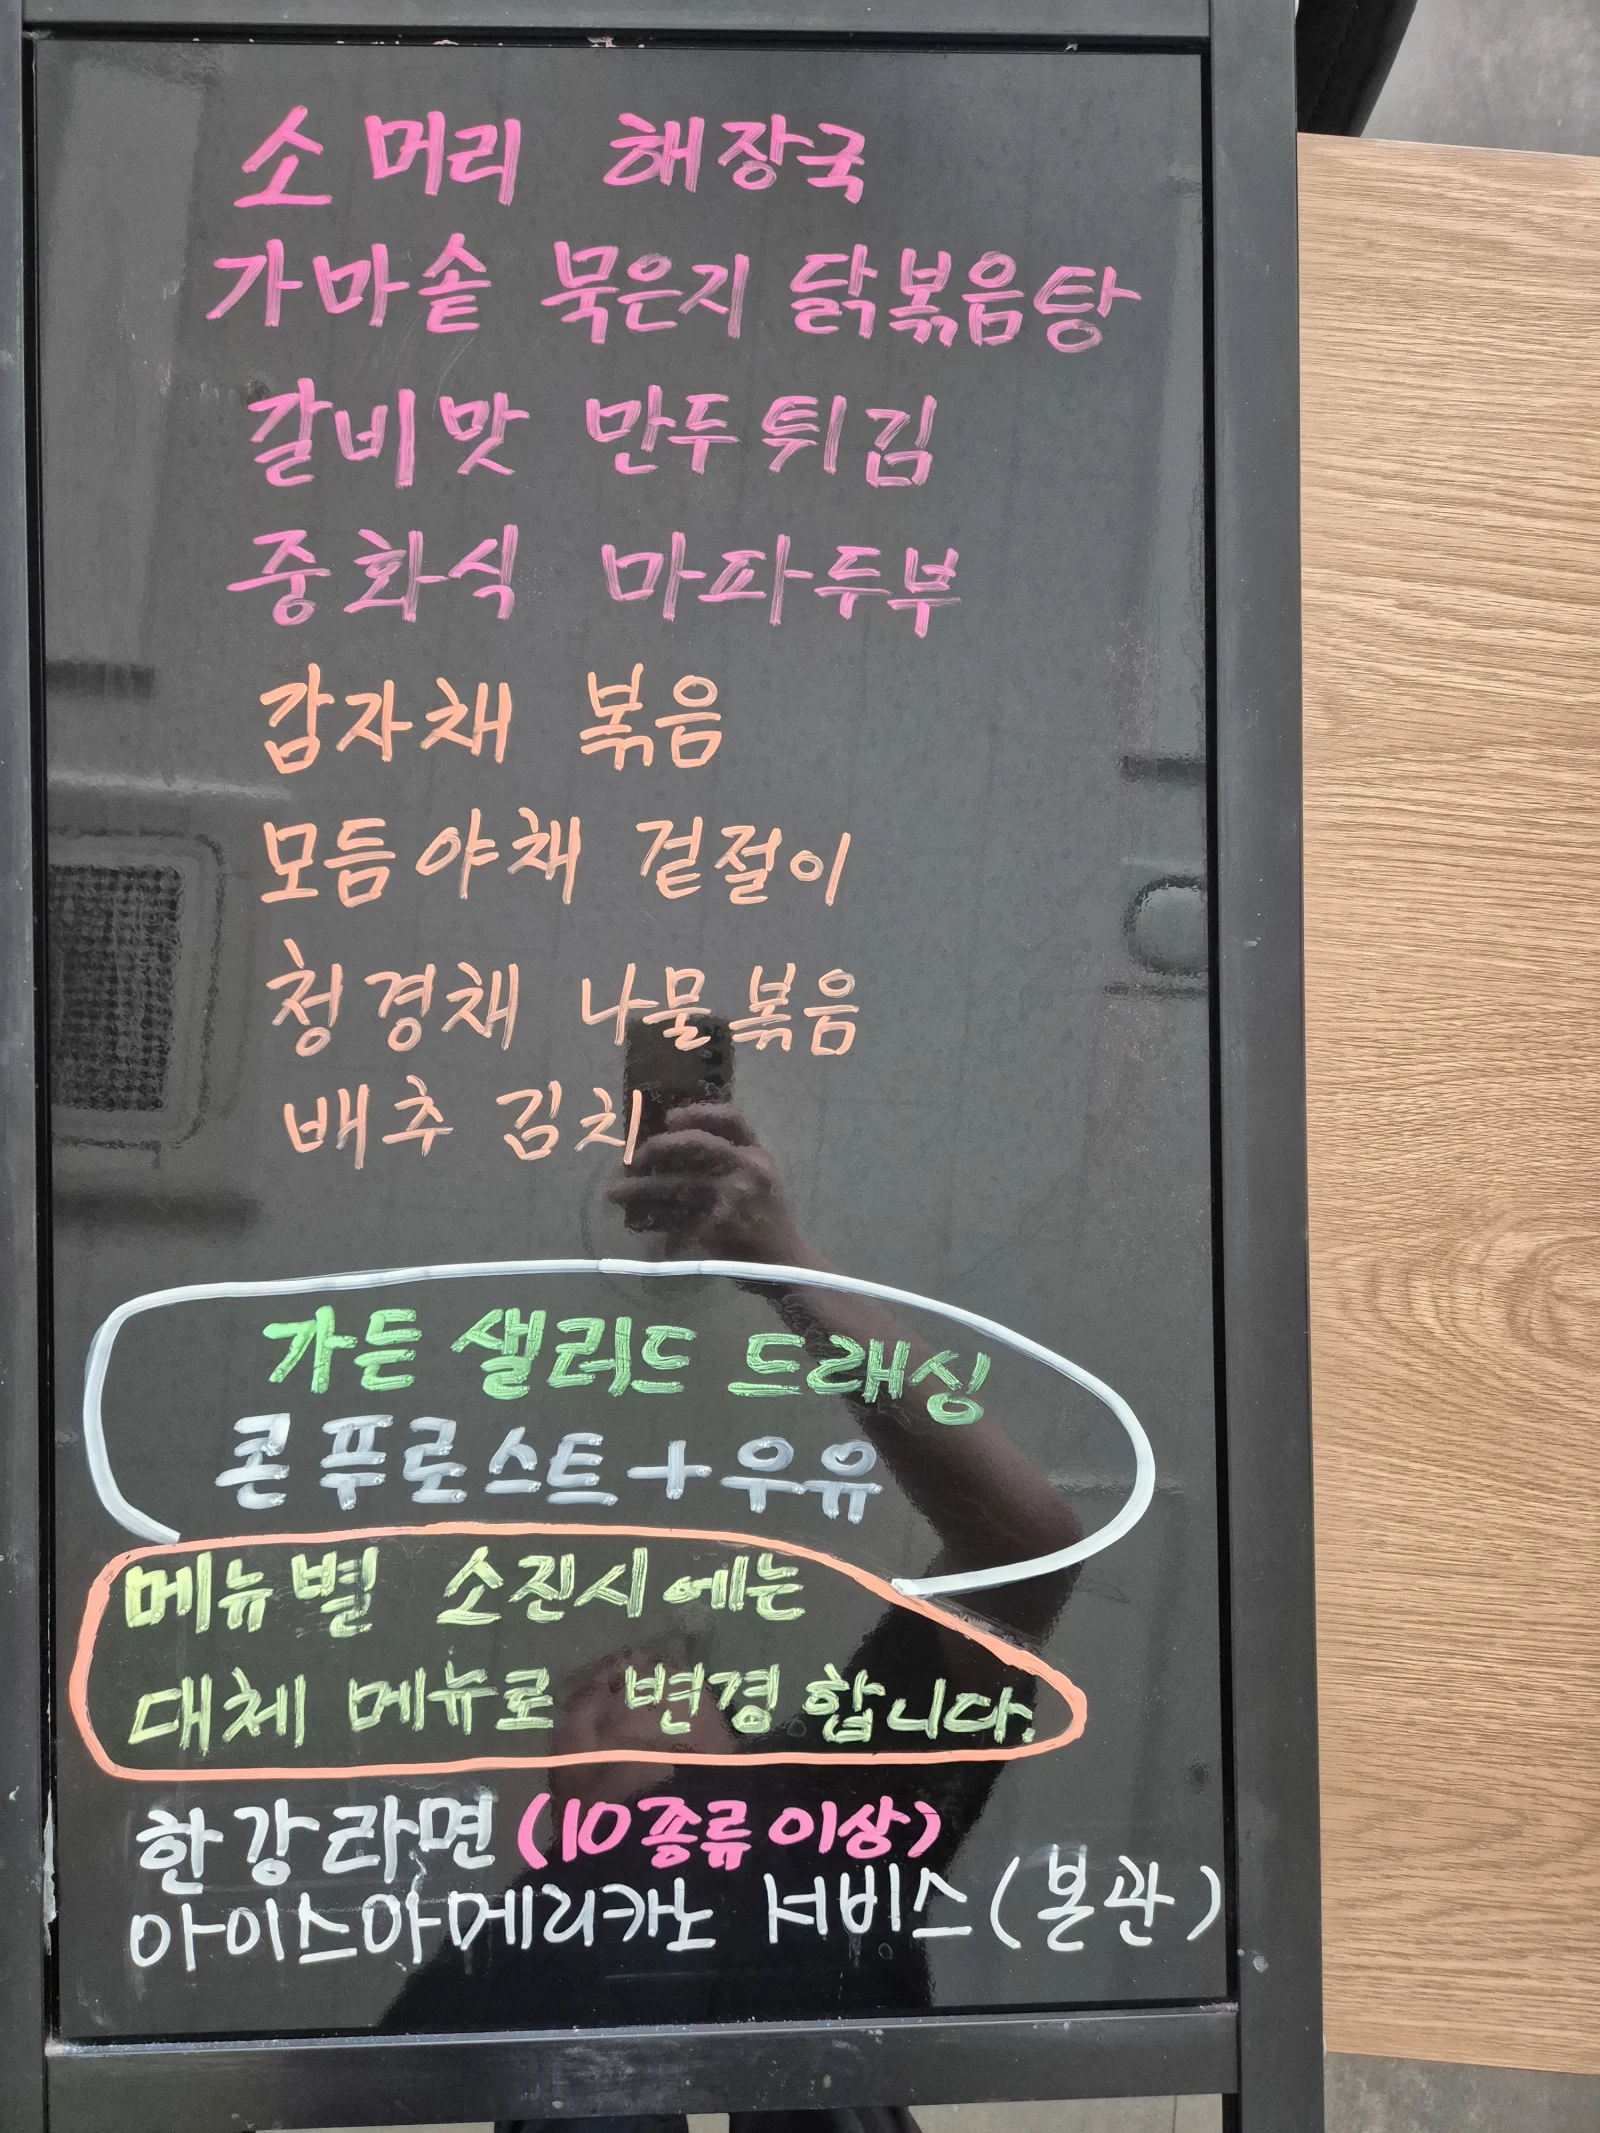 소머리 해장국
가마솥 묵은지 닭볶음탕
갈비맛 만두튀김
중화식 마파두부
감자채 볶음
모듬야채 겉절이
청경채 나물볶음
배추 김치
가든 샐러드 드래싱
콘푸로스트+우유
메뉴별 소진시에는
대체 메뉴로 변경합니다.
한강라면 (10종류이상)
아이스아메리카노 서비스(본관)